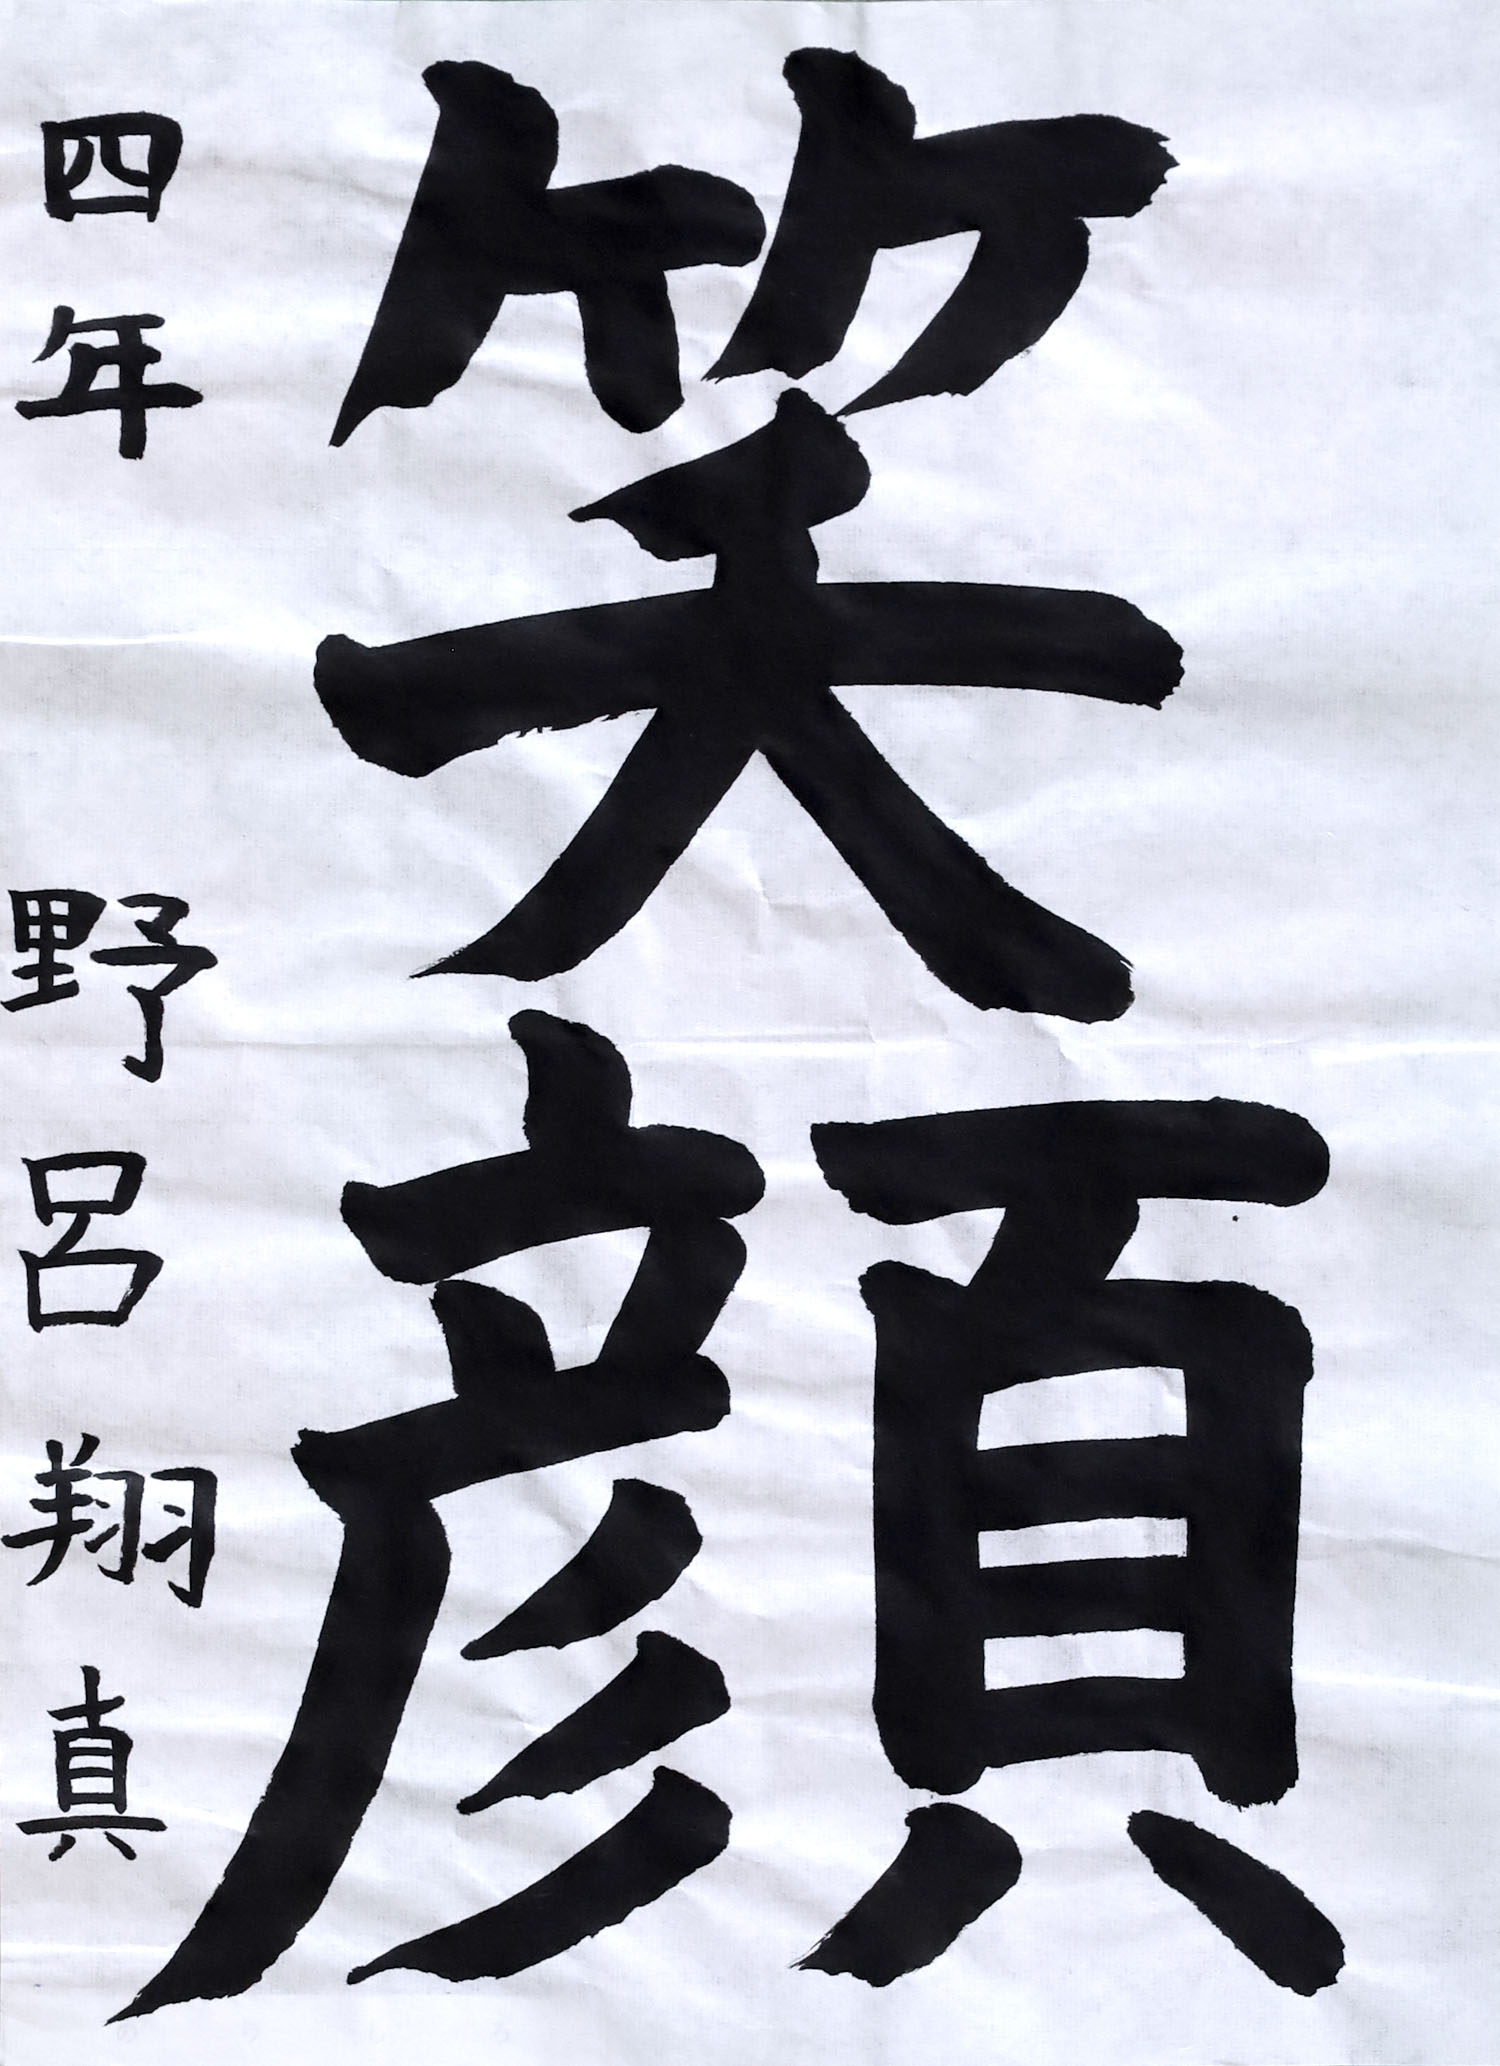 笑顔
四年 野呂翔真